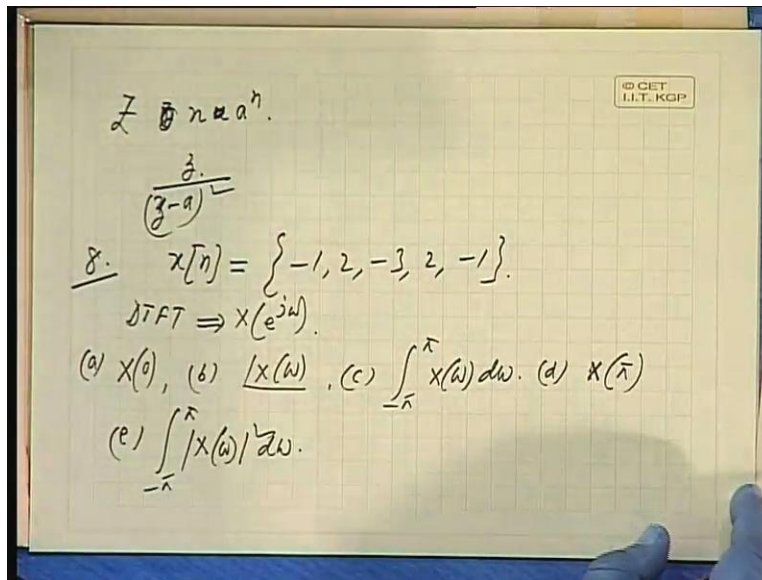 © CET
I.I.T. KGP
Z n a^n.
z.
(z-a)^2
8. x[n] = {-1, 2, -3, 2, -1}.
DTFT ⇒ X(e^{jω}).
(a) X(0), (b) ∠X(ω), (c) ∫_{-π}^{π} X(ω) dω. (d) X(π)
(e) ∫_{-π}^{π} |X(ω)|^2 dω.